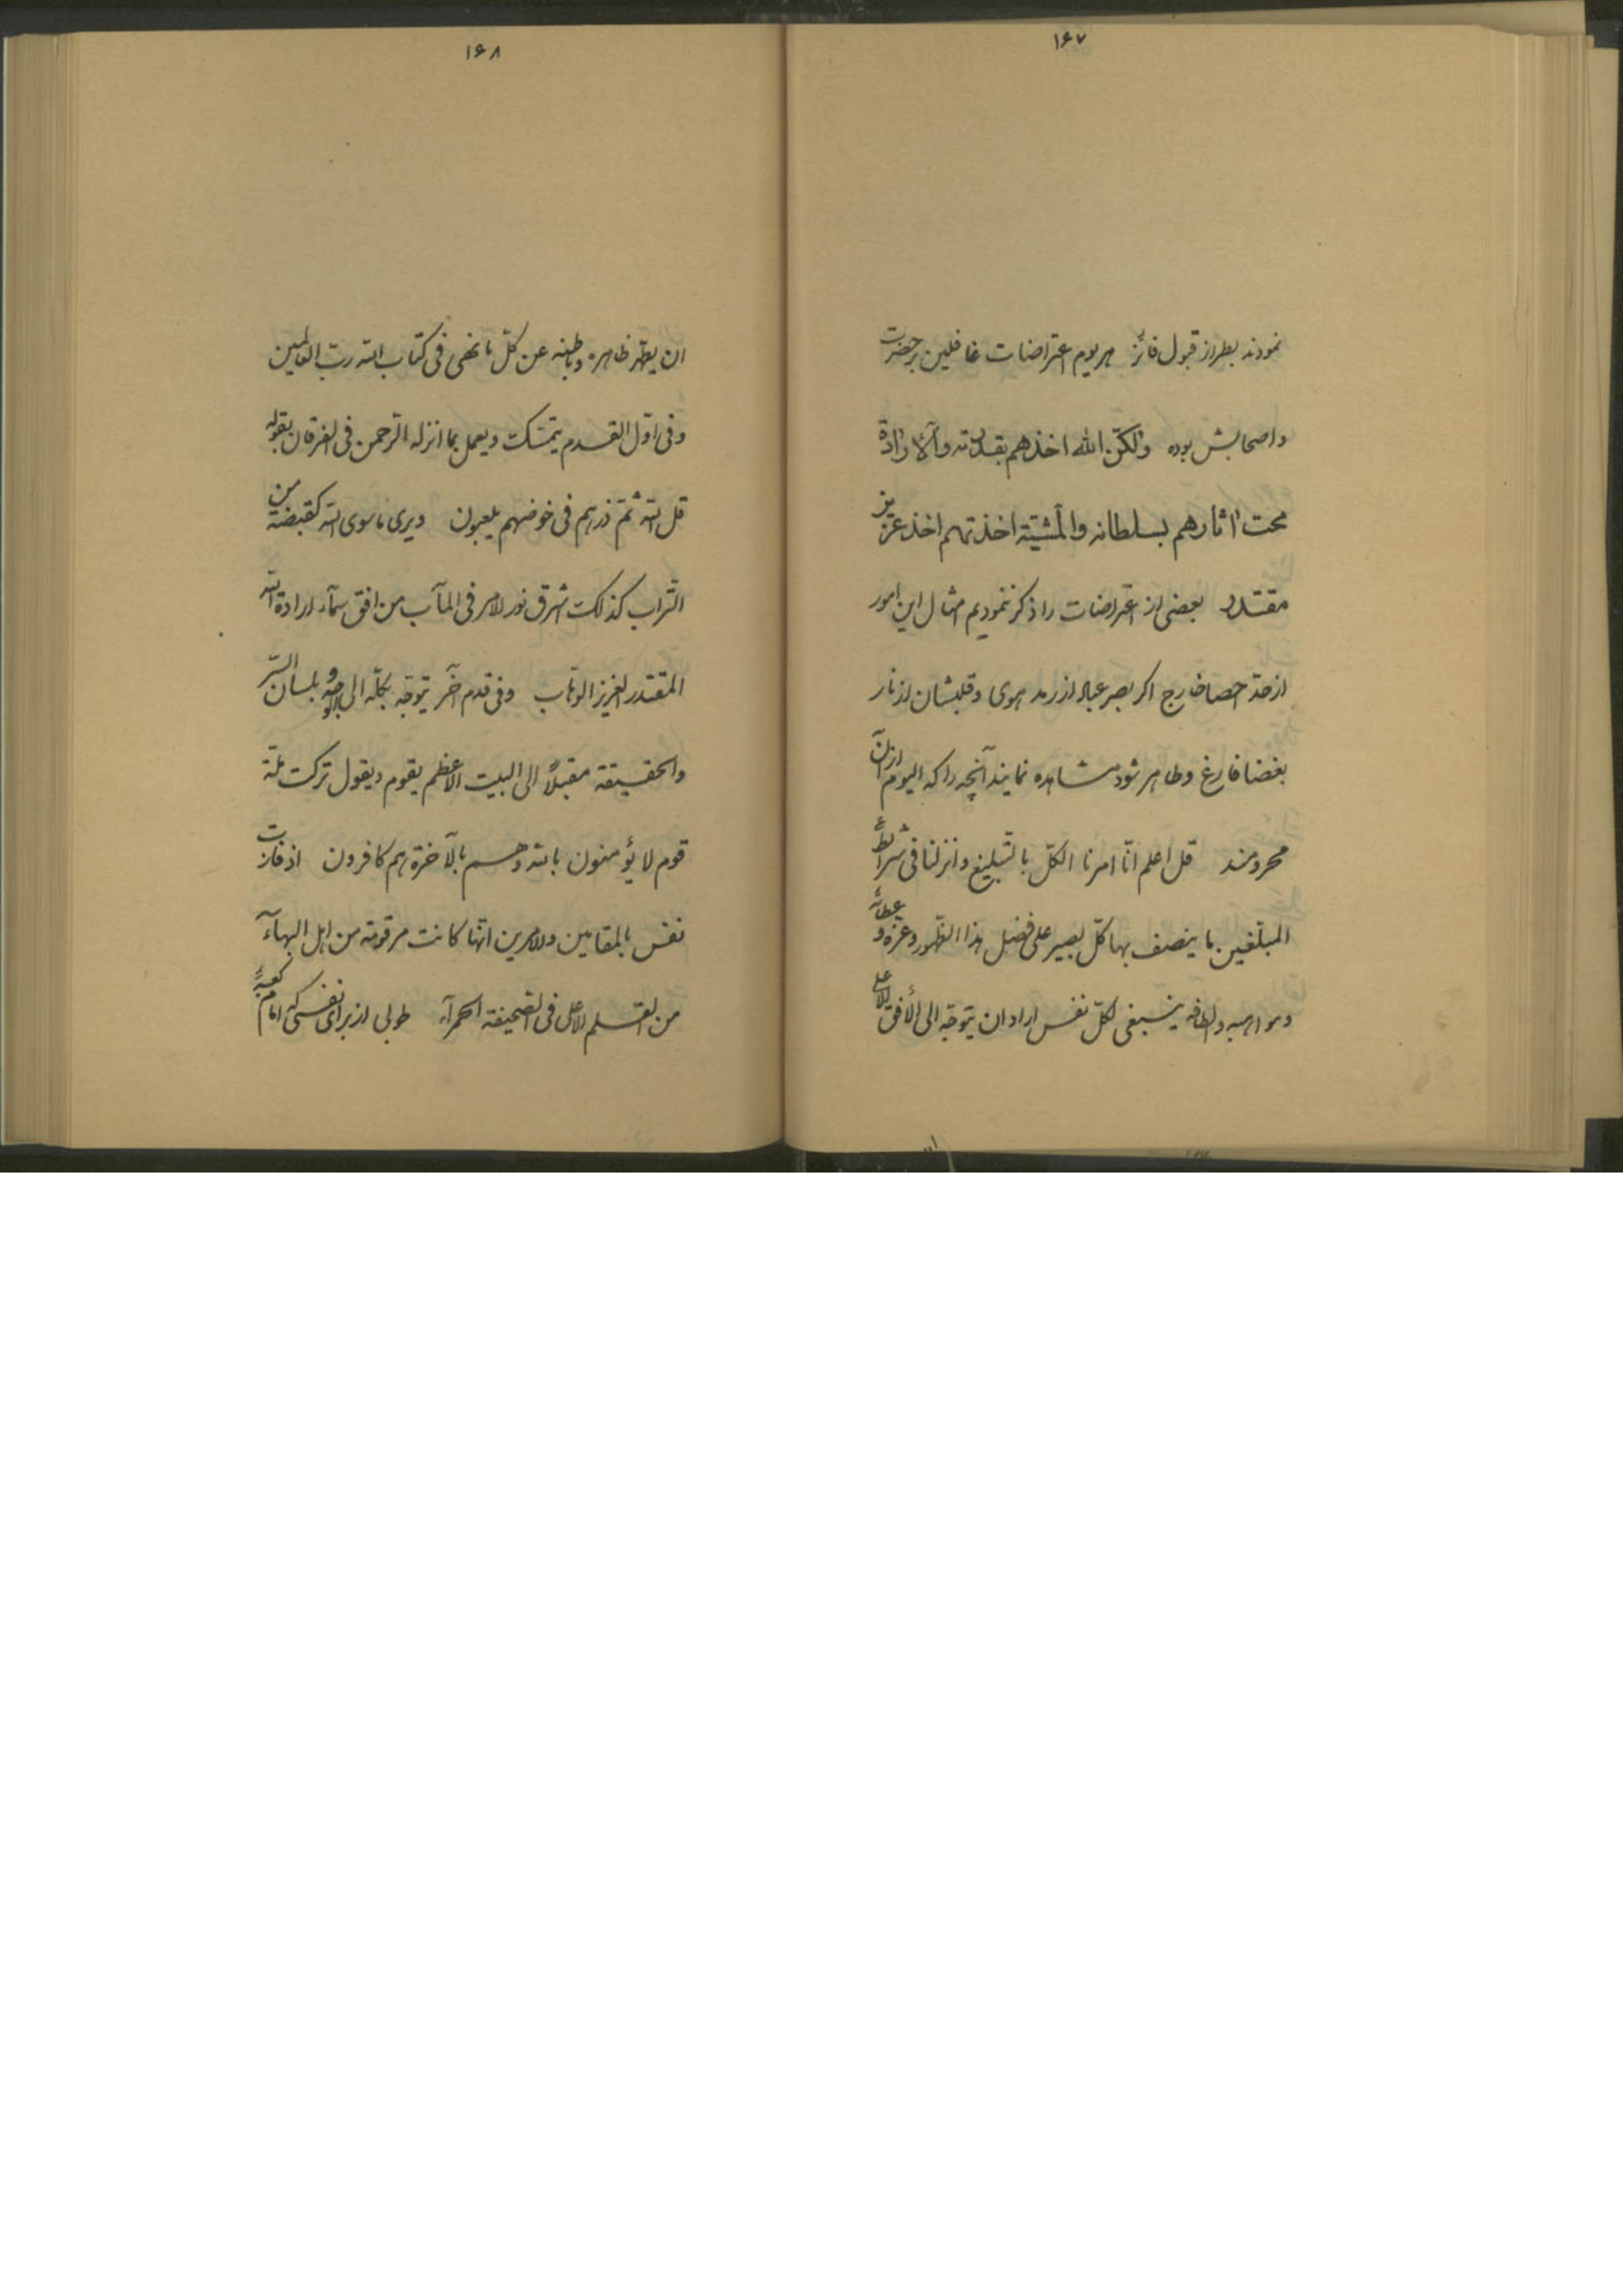 ۱۶۷
نمودند بطراز قبول فائز هر یوم اعتراضات غافلین بر حضرت
و اصحابش بوده ولکن الله اخذهم بقدرته والارادة
محت آثارهم بسلطانه والمشیّة اخذتهم اخذ عزیز
مقتدر بعضی از اعتراضات را ذکر نمودیم امثال این امور
از حدّ احصا خارج اکر بصر عباد از رمد هوی و قلبشان از نار
بغضا فارغ و طاهر شود مشاهده نمایند آنچه را که الیوم از آن
محرومند قل اعلم انّا امرنا الکلّ بالتبلیغ و انزلنا فی شرائط
المبلّغین ما ینصف بها کلّ بصیر علی فضل هذا الظهور و عزّه و عطائه
و مواهبه و الطافه ینبغی لکلّ نفس اراد ان یتوجّه الی الأفق الاعلی
۱۶۸
ان یطهّر ظاهره و باطنه عن کلّ ما نهی فی کتاب الله ربّ العالمین
و فی اوّل القدم یتمسّک و یعمل بما انزله الرحمن فی الفرقان بقوله
قل الله ثمّ ذرهم فی خوضهم یلعبون و یری ما سوی الله کقبضة من
التّراب کذلک اشرق نور الامر فی المآب من افق سمآء ارادة الله
المقتدر العزیز الوهّاب و فی قدم آخر یتوجّه بکلّه الی الوجه و بلسان السّر
و الحقیقة مقبلاً الی البیت الاعظم یقوم و یقول ترکت ملّة
قوم لا یؤمنون بالله و هم بالآخرة هم کافرون اذ فازت
نفس بالمقامین و الامرین انّها کانت مرقومة من اهل البهآء
من القلم الاعلی فی الصّحیفة الحمرآء طوبی از برای نفسی که امام کعبهٔ